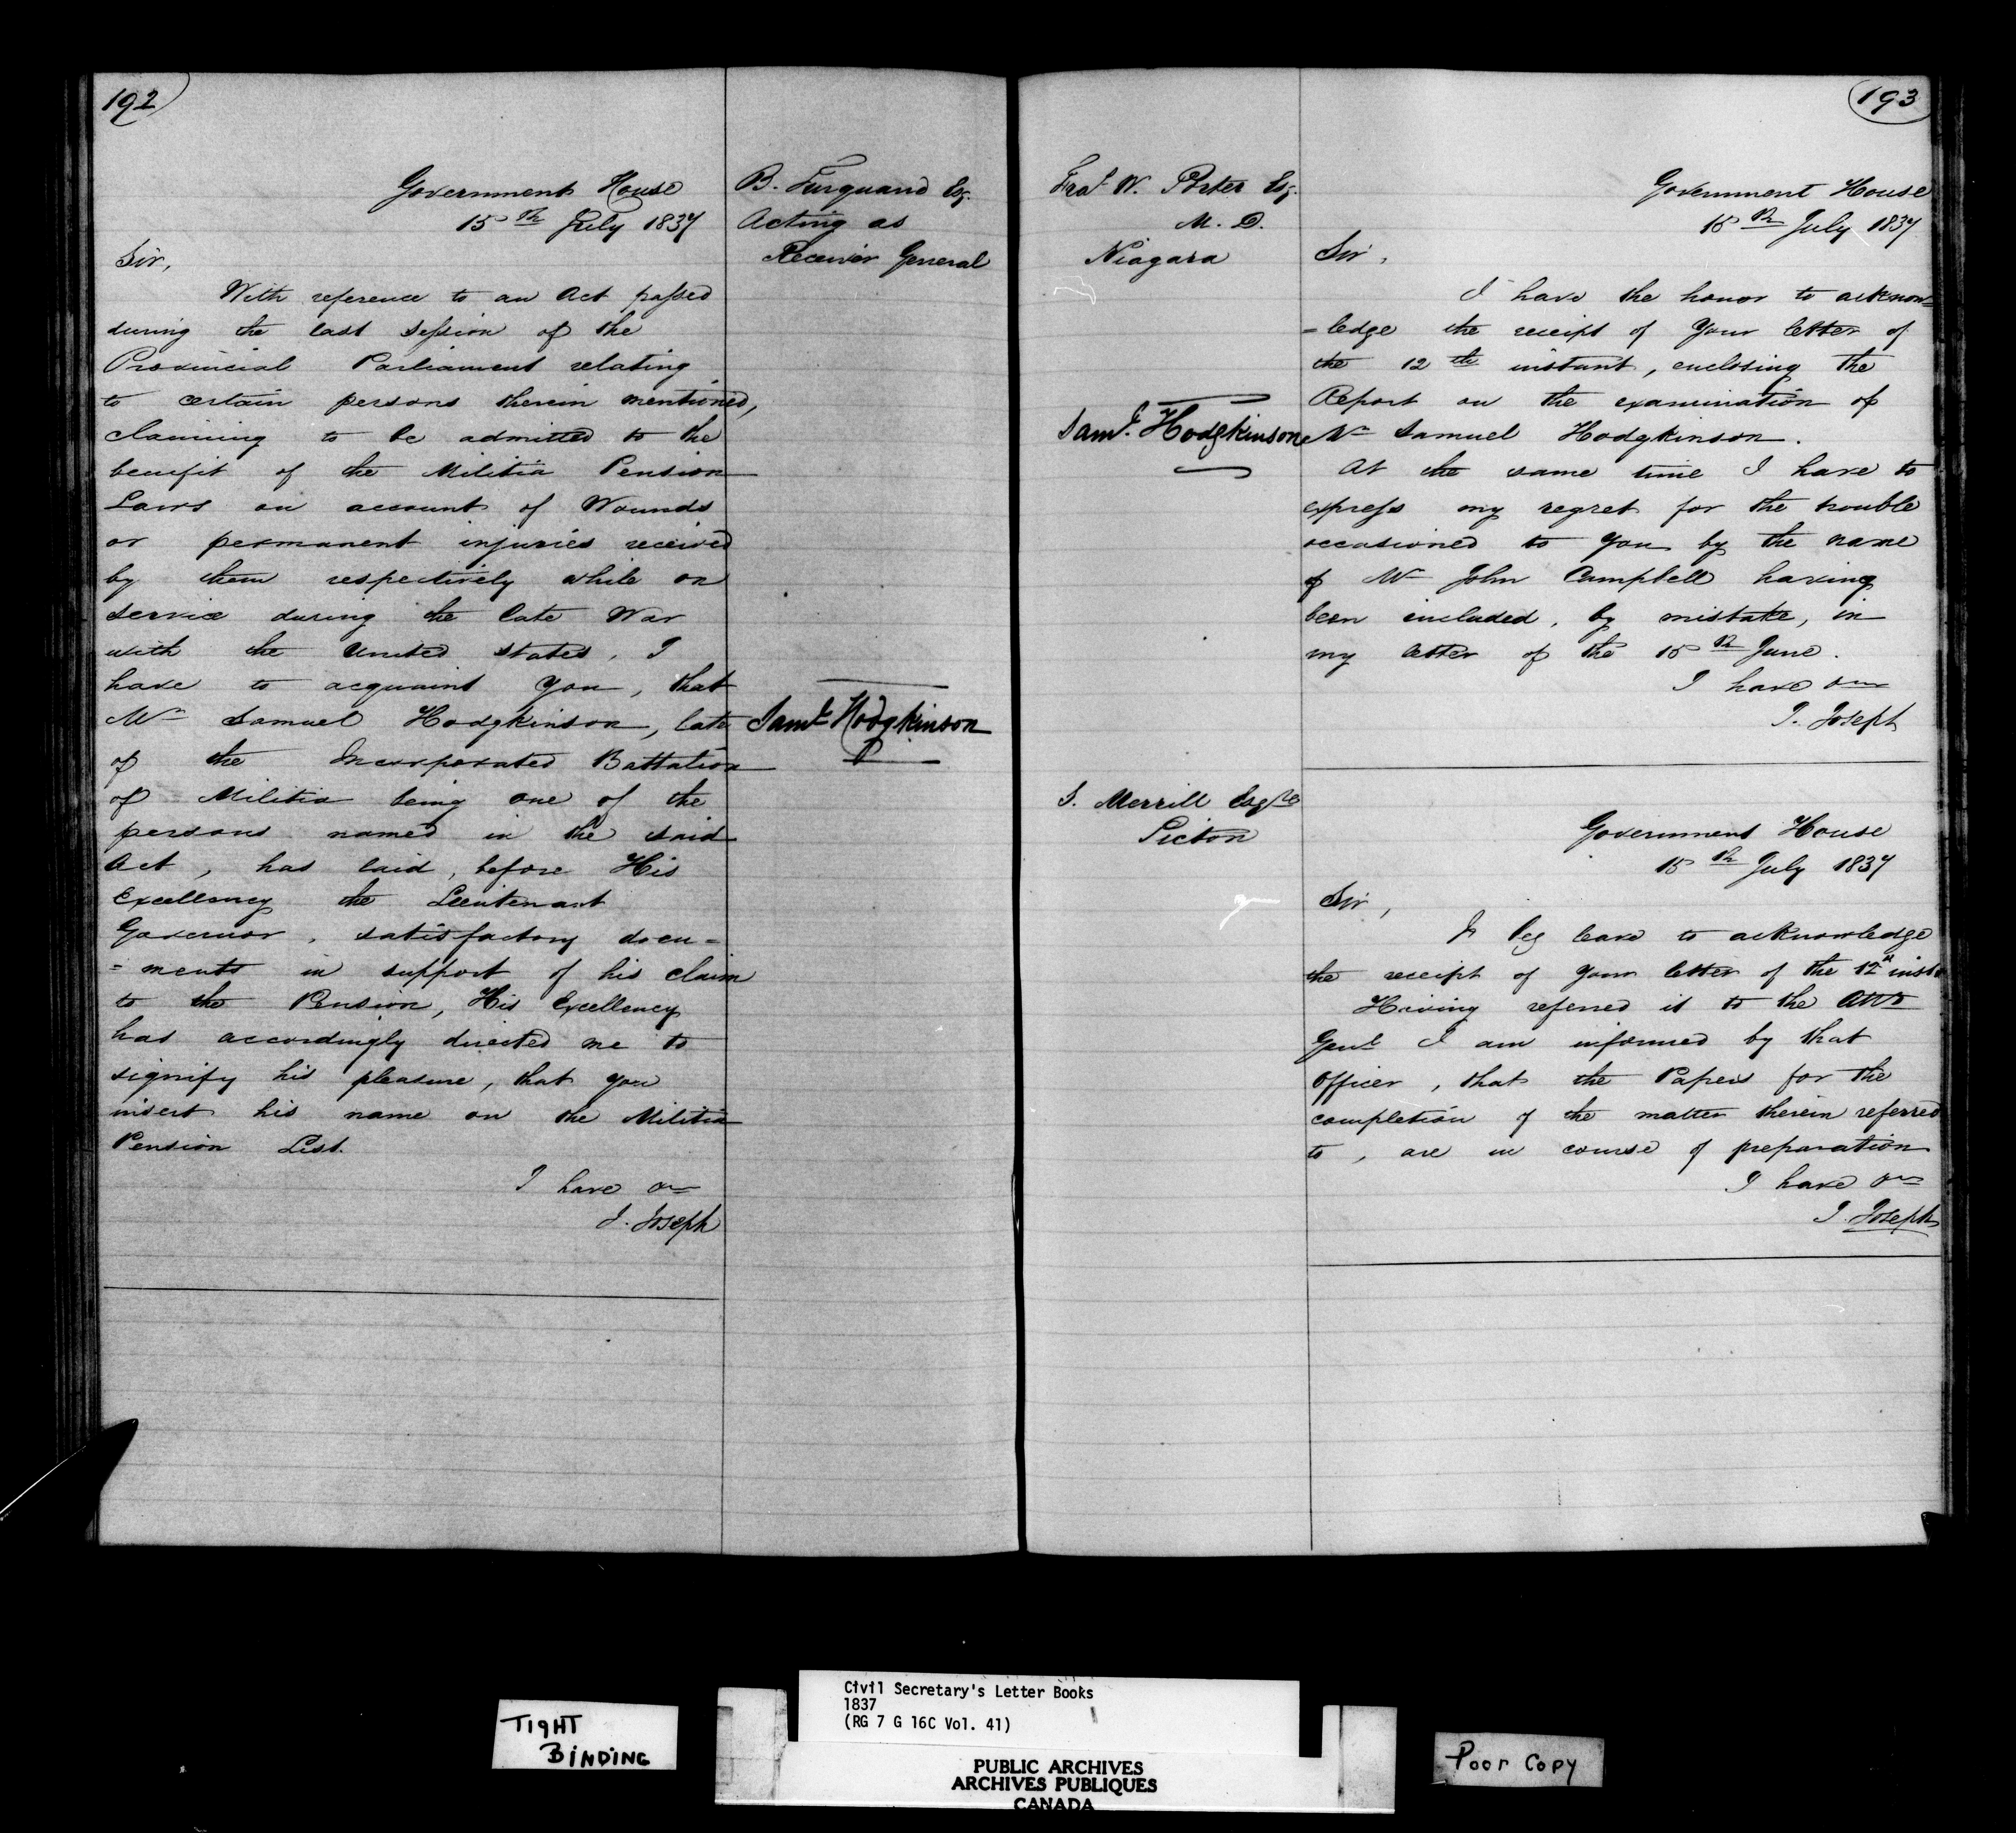 192
Government House
15th July 1837
B. Turquand Esq.
Acting as
Receiver General
Sir,
With reference to an Act passed
during the last Session of the
Provincial Parliament relating
to certain persons therein mentioned,
claiming to be admitted to the
benefit of the Militia Pension
Laws on account of Wounds
or permanent injuries received
by them respectively while on
service during the late War
with the United States, I
have to acquaint you, that
Mr Samuel Hodgkinson, late
Saml Hodgkinson
P
of the Incorporated Battalion
of Militia being one of the
persons named in the said
Act, has laid, before His
Excellency the Lieutenant
Governor, satisfactory docu=
=ments in support of his claim
to the Pension, His Excellency
has accordingly directed me to
signify his pleasure, that you
insert his name on the Militia
Pension List.
I have &c
J. Joseph
193
Fras W. Porter Esq.
M. D.
Niagara
Government House
15th July 1837
Sir,
I have the honor to acknow=
=ledge the receipt of your letter of
the 12th instant, enclosing the
Report on the examination of
Saml Hodgkinson
Mr Samuel Hodgkinson.
At the same time I have to
express my regret for the trouble
occasioned to you by the name
of Mr John Campbell having
been included, by mistake, in
my letter of the 15th June.
I have &c
J. Joseph
S. Merrill Esqre
Picton
Government House
15th July 1837
Sir,
I beg leave to acknowledge
the receipt of your letter of the 12th inst
Having referred it to the Atty
Genl I am informed by that
Officer, that the Papers for the
completion of the matter therein referred
to, are in course of preparation
I have &c
J. Joseph
TIGHT
BINDING
Civil Secretary's Letter Books
1837
(RG 7 G 16C Vol. 41)
PUBLIC ARCHIVES
ARCHIVES PUBLIQUES
CANADA
Poor Copy